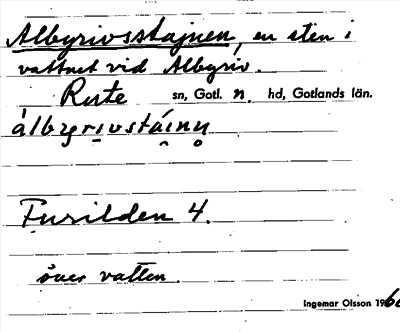 Albyrivsstajnen, en sten i
vattnet vid Albyriv.
Rute sn, Gotl. n. hd, Gotlands län.
Furilden 4.
över vatten.
Ingemar Olsson 1960